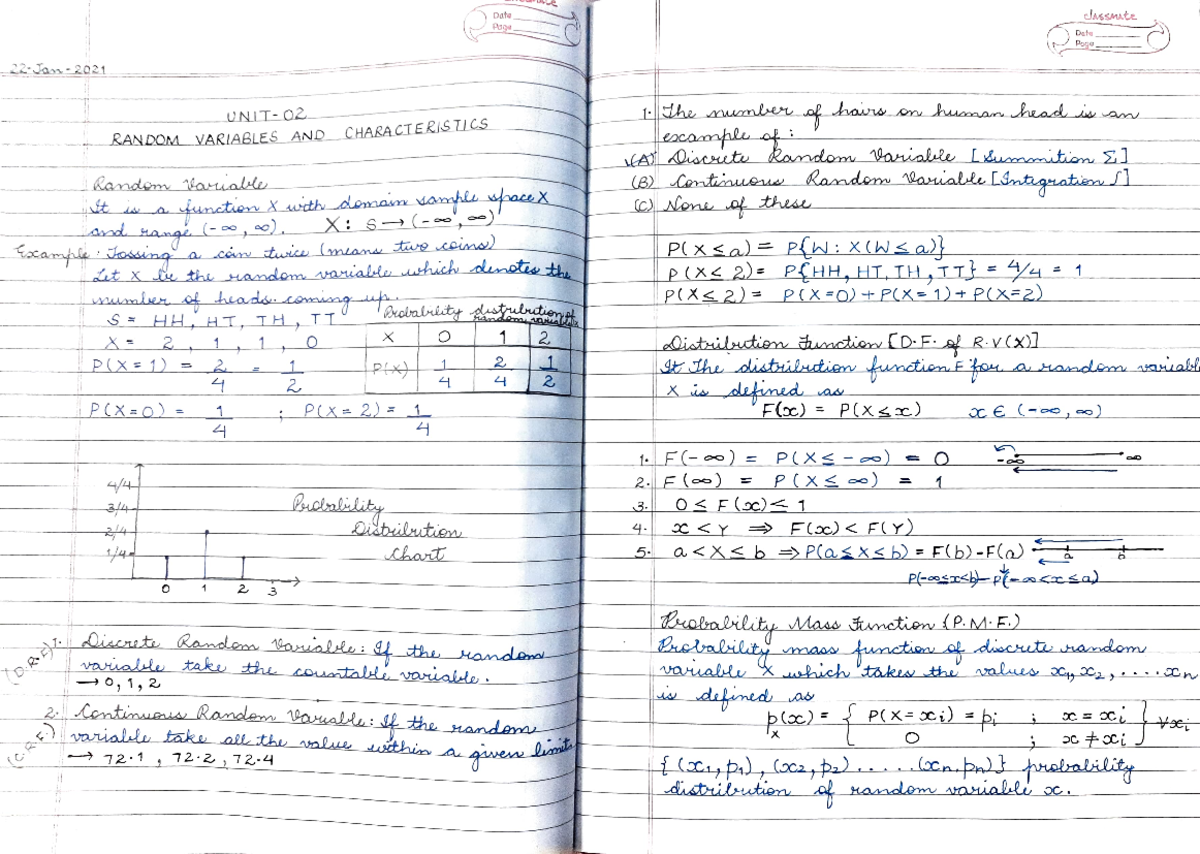 Date
Page
22-Jan-2021
UNIT-02
RANDOM VARIABLES AND CHARACTERISTICS
Random Variable
It is a function X with domain sample space X
and range (-∞, ∞). X: S → (-∞, ∞)
Example: Tossing a coin twice (means two coins)
Let X be the random variable which denotes the
number of heads coming up.
S = HH, HT, TH, TT
X = 2, 1, 1, 0
P(X=1) = 2/4 = 1/2
P(X=0) = 1/4 ; P(X=2) = 1/4
Probability distribution of
random variable x
X 0 1 2
P(X) 1/4 2/4 1/2
4/4
3/4
2/4
1/4
0 1 2 3
Probability
Distribution
Chart
(D.R.F) 1. Discrete Random Variable: If the random
variable take the countable variable.
→ 0, 1, 2
(C.R.F.) 2. Continuous Random Variable: If the random
variable take all the value within a given limits
→ 72.1, 72.2, 72.4
classmate
Date
Page
1. The number of hairs on human head is an
example of:
(A) Discrete Random Variable [Summition Σ]
(B) Continuous Random Variable [Integration ∫]
(C) None of these
P(X≤a) = P{W: X(W≤a)}
P(X≤2) = P{HH, HT, TH, TT} = 4/4 = 1
P(X≤2) = P(X=0) + P(X=1) + P(X=2)
Distribution Function [D.F. of R.V(X)]
It The distribution function F for a random variabl
X is defined as
F(x) = P(X≤x) x ∈ (-∞, ∞)
1. F(-∞) = P(X≤-∞) = 0 -∞ ∞
2. F(∞) = P(X≤∞) = 1
3. 0 ≤ F(x) ≤ 1
4. x < Y ⇒ F(x) < F(Y)
5. a < X ≤ b ⇒ P(a≤X≤b) = F(b) - F(a) a b
P(-∞≤x<b) - P(-∞<x≤a)
Probability Mass Function {P.M.F.)
Probability mass function of discrete random
variable X which takes the values x1, x2, ....xn
is defined as
px(x) = { P(X=xi) = pi ; x = xi } ∀xi
0 ; x ≠ xi
{(x1, p1), (x2, p2) ..... (xn.pn)} probability
distribution of random variable x.